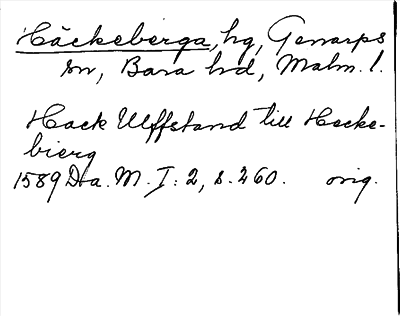 Häckeberga, hg, Genarps
sn, Bara hd, Malm. l.
Hack Ulffstand till Hacke-
bierg
1589 Dra. M. I: 2, s. 260. orig.